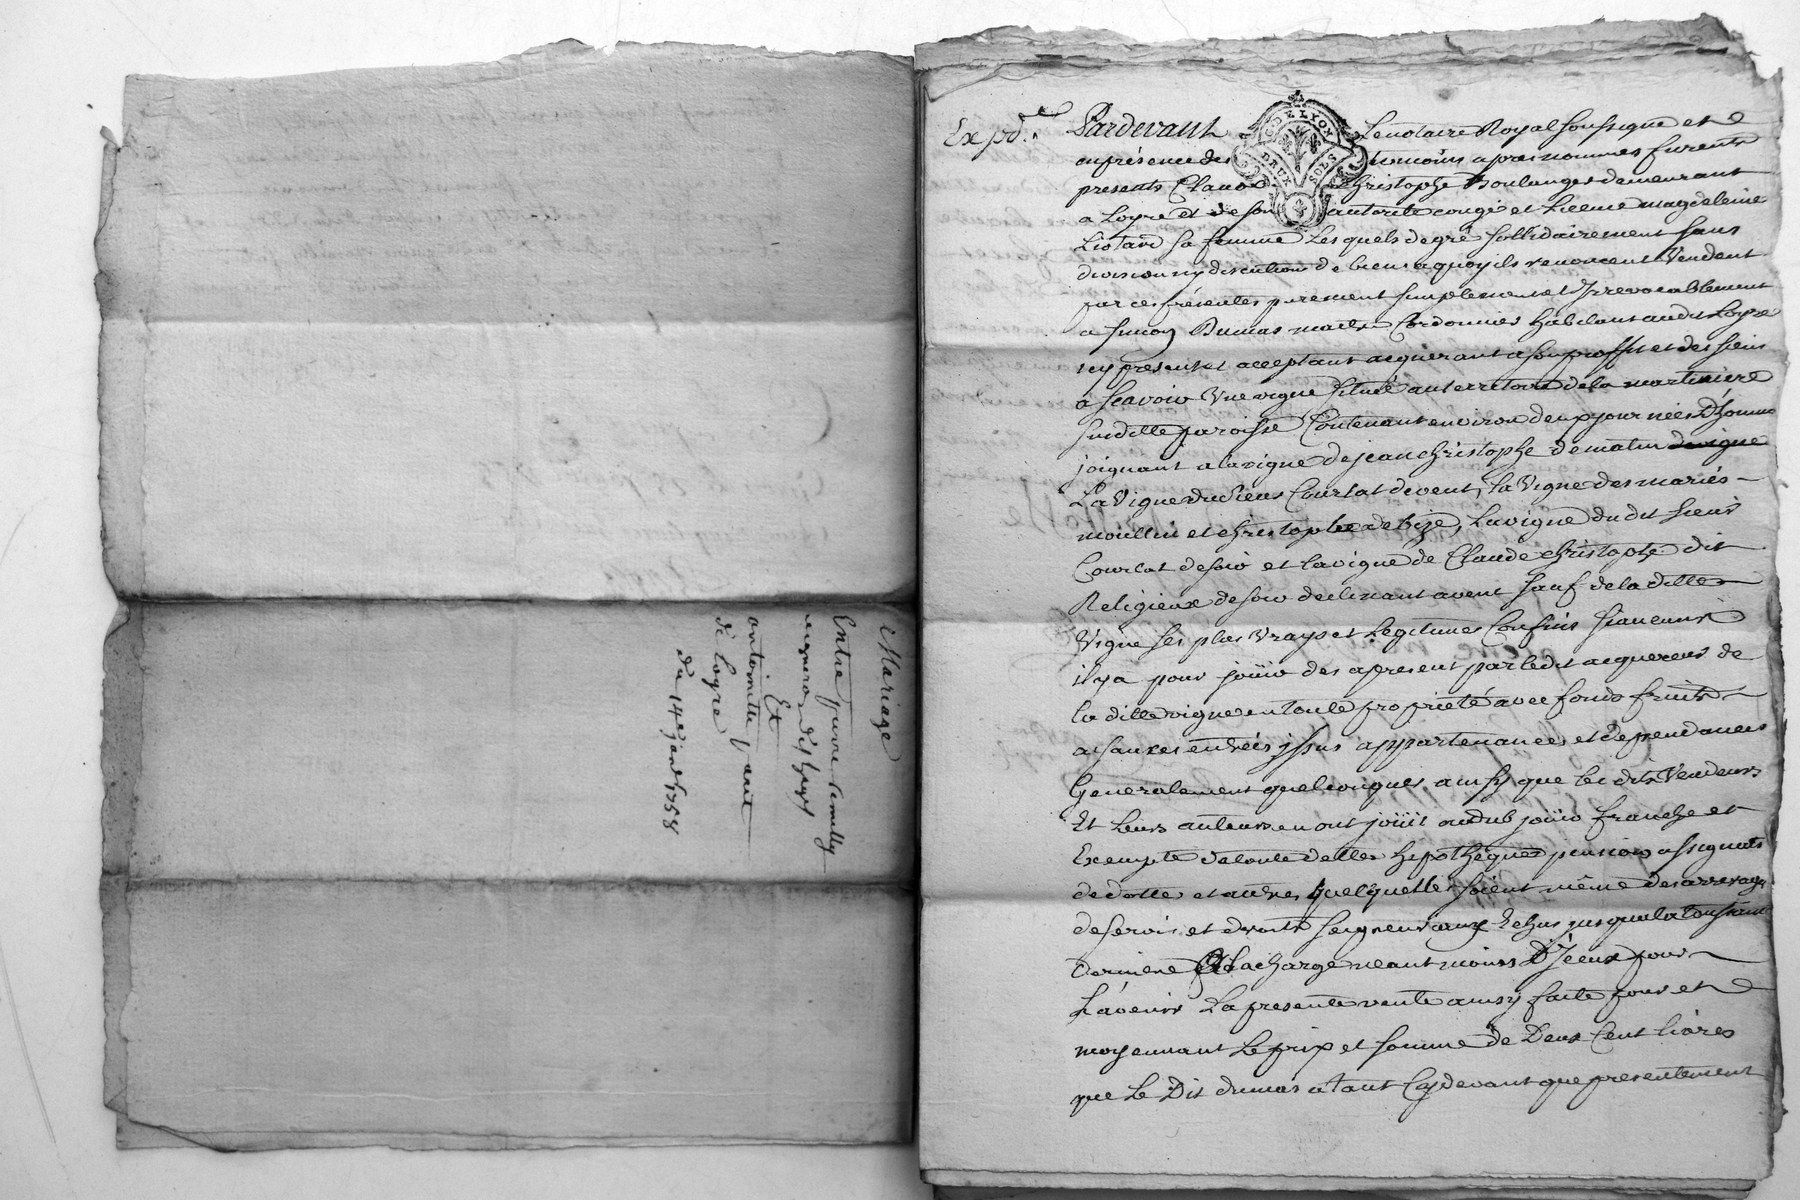 Mariage
Entre pierre
vigneron de
Et
antoinette
de Loyre
du 14e janv 1758
Expd.e
Pardevant Le notaire Royal soussigné et
en présence des temoins apres nommes furent
presents Claude Christophe Boulanger demeurant
a Loyre et de son autorité congé et licence magdeleine
Liotard sa femme Lesquels de gré sollidairement sans
division ny discution de biens a quoy ils renoncent Vendent
par ces présentes purement simplement et Irrevocablement
a simon Dumas maitre Cordonnier habitant audit Loyre
icy present et acceptant acquerant a son proffit et des siens
a sçavoir Une vigne située au territoire de la martiniere
susditte paroisse Contenant environ deux journées D'homme
joignant a la vigne de jean christophe de matin de vigne
La Vigne du sieur Courlat de vent, la Vigne des mariés
moullin et christophe de bize, La vigne du dit sieur
Courlat de soir et la vigne de Claude christophe dit
Religieux de soir declinant a vent sauf de la ditte
Vigne ses plus Vrays et Legitimes Confins si aucuns
il y a pour joüir des apresent par ledit acquereur de
la ditte vigne en toute proprieté avec fonds fruits
aisances entrées issus appartenances et dependances
Generalement quelconques ainsy que les dits Vendeurs
Et Leurs auteurs en ont joüit ou dub joüir franche et
Exempte de toute dettes hipothèques pension assignats
de dotte et autres quelquelles soient même des arrerages
de servis et droits seigneuriaux Echus jusqua la toussaint
derniere a la charge neantmoins D'Iceux pour
L'avenir La presente vente ainsy faite pour et
moyennant Le prix et somme de Deux Cent livres
que Le Dit dumas a tant Cy devant que presentement
C. DE LYON
DEUX SOLS